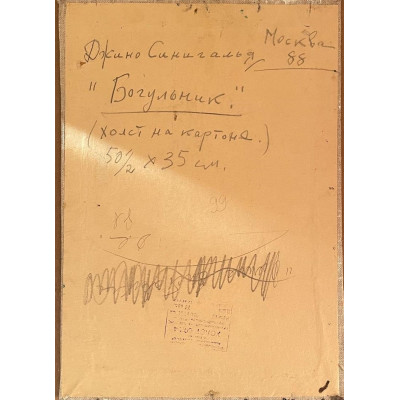 Джино Синигальд
Москва
88
"Богульник."
(холст на картоне.)
50½ x 35 см.
99